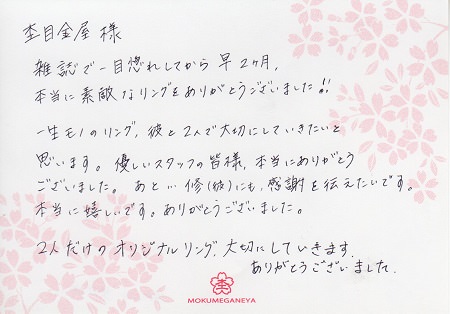 杢目金屋 様
雑誌で一目惚れしてから早2ヶ月、
本当に素敵なリングをありがとうございました!!
一生モノのリング、彼と2人で大切にしていきたいと
思います。優しいスタッフの皆様、本当にありがとう
ございました。あと…修(彼)にも、感謝を伝えたいです。
本当に嬉しいです。ありがとうございました。
2人だけのオリジナルリング、大切にしていきます。
ありがとうございました。
MOKUMEGANEYA